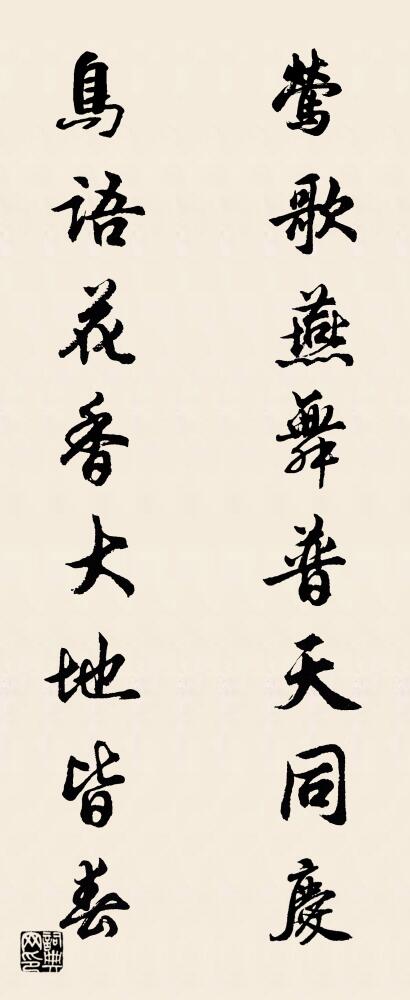 鶯歌燕舞普天同慶
鳥語花香大地皆春
詞典網印